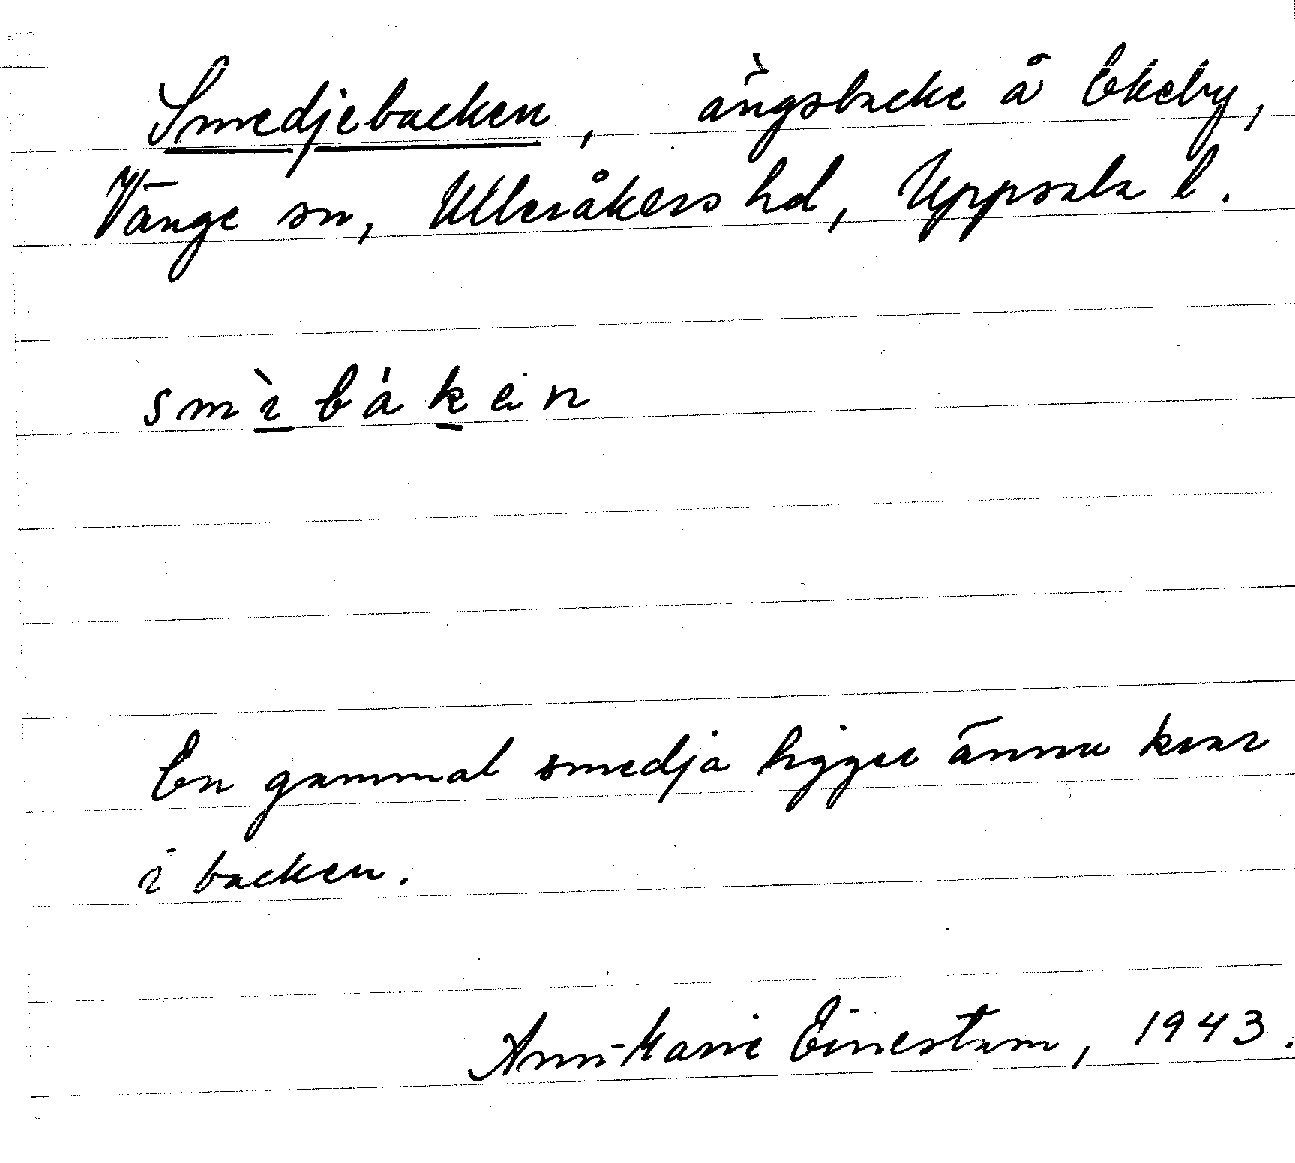 Smedjebacken, ängsbacke å Ekeby,
Vänge sn, Ulleråkers hd, Uppsala l.
smìbáken
En gammal smedja ligger ännu kvar
i backen.
Ann-Marie Einestam, 1943.